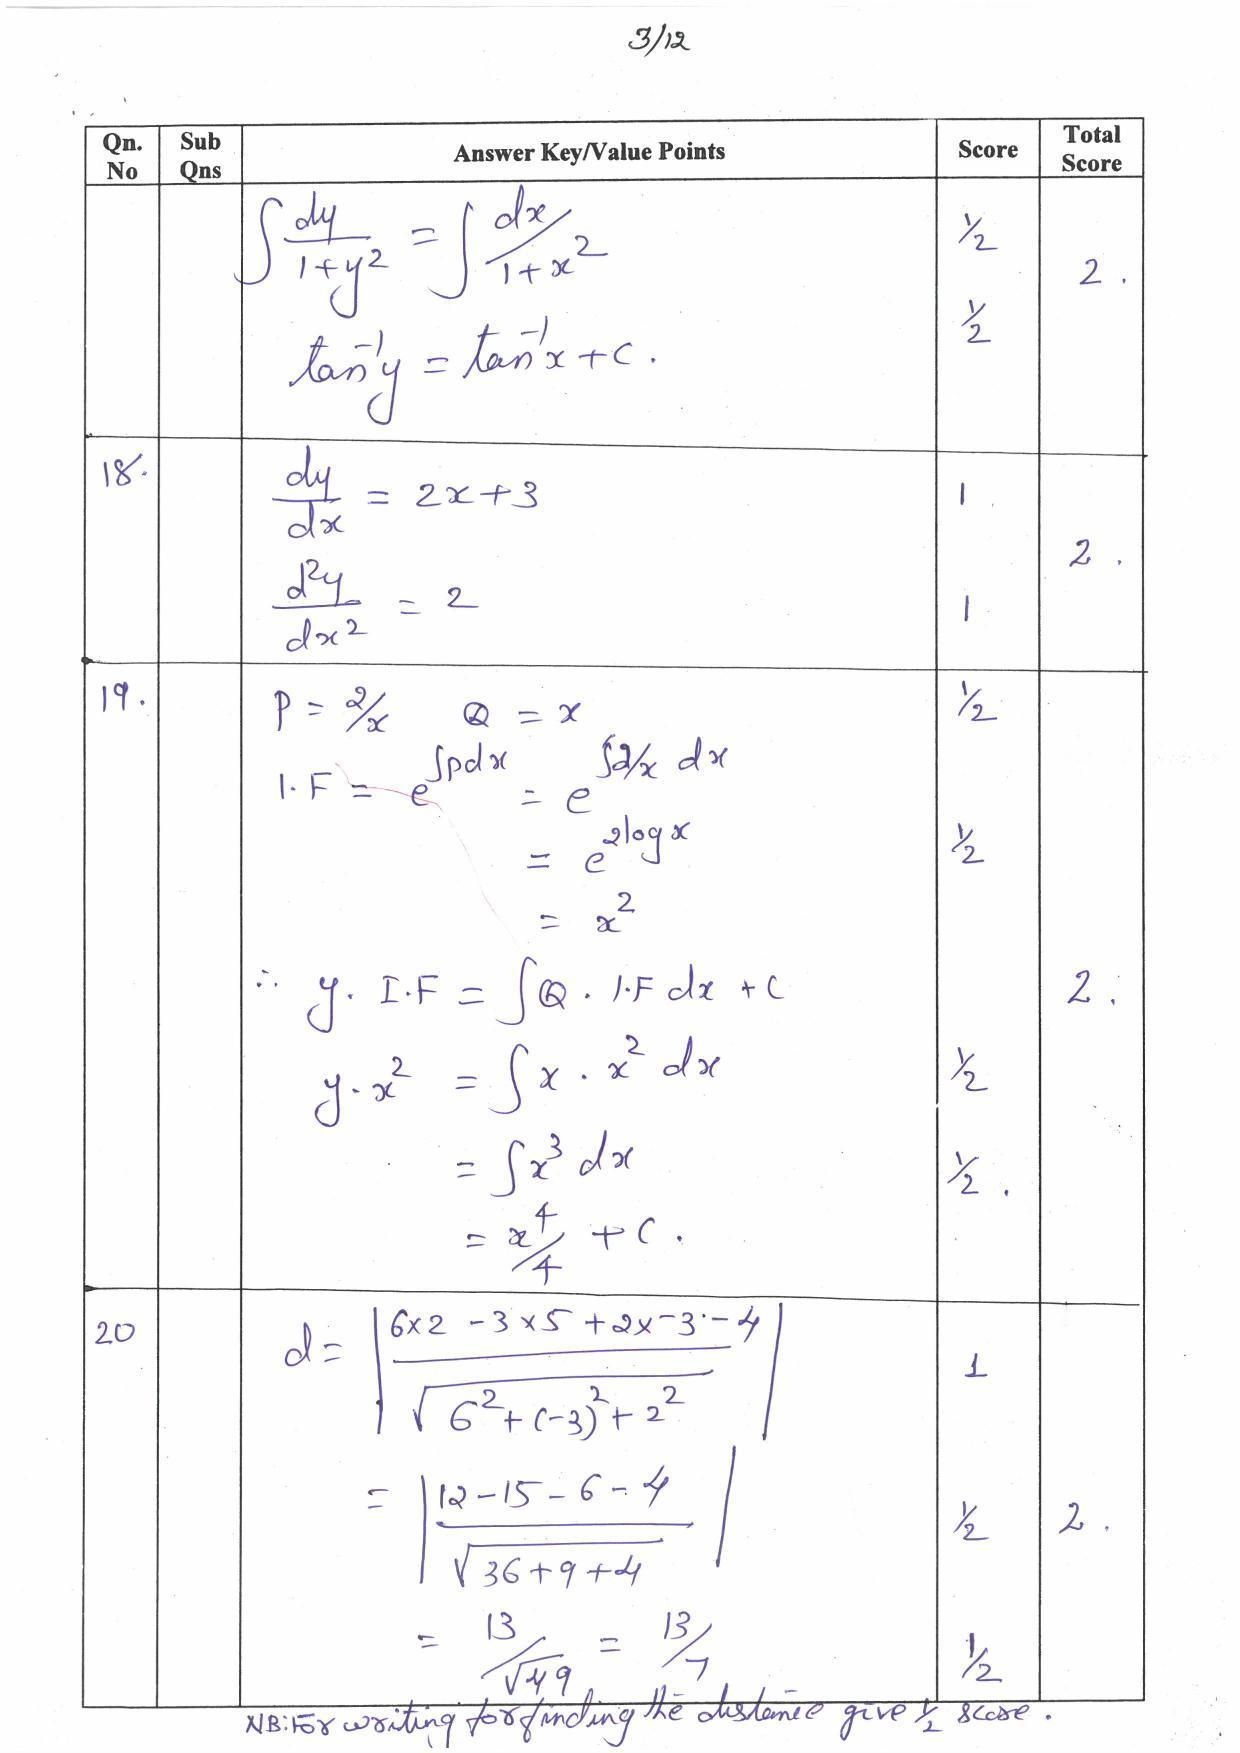 3/12
Qn. No | Sub Qns | Answer Key/Value Points | Score | Total Score
∫ dy/(1+y²) = ∫ dx/(1+x²) | ½ | 2.
tan⁻¹y = tan⁻¹x + C. | ½
18. | dy/dx = 2x+3 | 1 | 2.
d²y/dx² = 2 | 1
19. | P = 2/x Q = x | ½
I.F = e^∫pdx = e^∫2/x dx
= e^2logx | ½
= x²
∴ y. I.F = ∫Q . I.F dx + C | 2.
y.x² = ∫x . x² dx | ½
= ∫x³ dx | ½.
= x⁴/4 + C.
20 | d = |(6×2 -3×5 +2×-3 -4)/√(6²+(-3)²+2²)| | 1
= |(12-15-6-4)/√(36+9+4)| | ½ | 2.
= 13/√49 = 13/7 | ½
NB: For writing for finding the distance give ½ score.